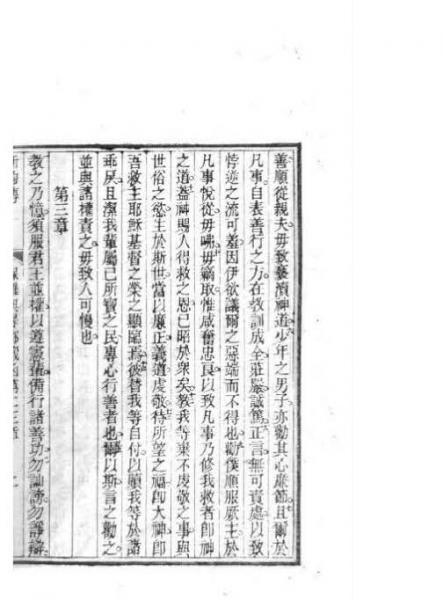 善順從親夫毋致褻瀆神道少年之男子亦勸其心廉節且爾於
凡事自表善行之力在敎訓成全莊嚴誠篤正言無可責處以致
悖逆之流可羞因伊欲議爾之惡端而不得也勸僕順服厥主於
凡事悅從毋咈毋竊取惟咸奮忠良以致凡事乃修我救者卽神
之道蓋神賜人得救之恩已昭於眾矣敎我等棄不虔敬之事與
世俗之慾生於斯世當以廉正義道虔敬待所望之福卽大神卽
吾救主耶穌基督之榮之顯臨焉彼替我等自付以贖我等於諸
乖戾且潔我輩屬己所寶之民專心行善者也爾以斯言之勸之
並與諸權責之毋致人可慢也
第三章
敎之乃憶須服君王並權以遵憲預備行諸善功勿訕謗勿譁